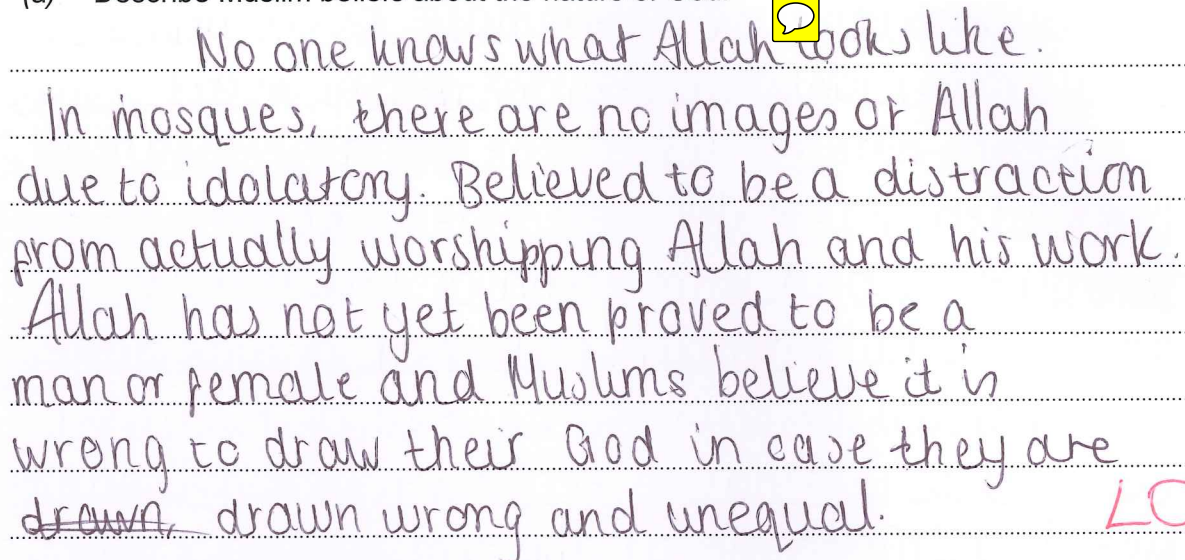 (a) Describe Muslim beliefs about the nature of
No one knows what Allah looks like.
In mosques, there are no images of Allah
due to idolatory. Believed to be a distraction
from actually worshipping Allah and his work.
Allah has not yet been proved to be a
man or female and Muslims believe it is
wrong to draw their God in case they are
drawn, drawn wrong and unequal.
LO